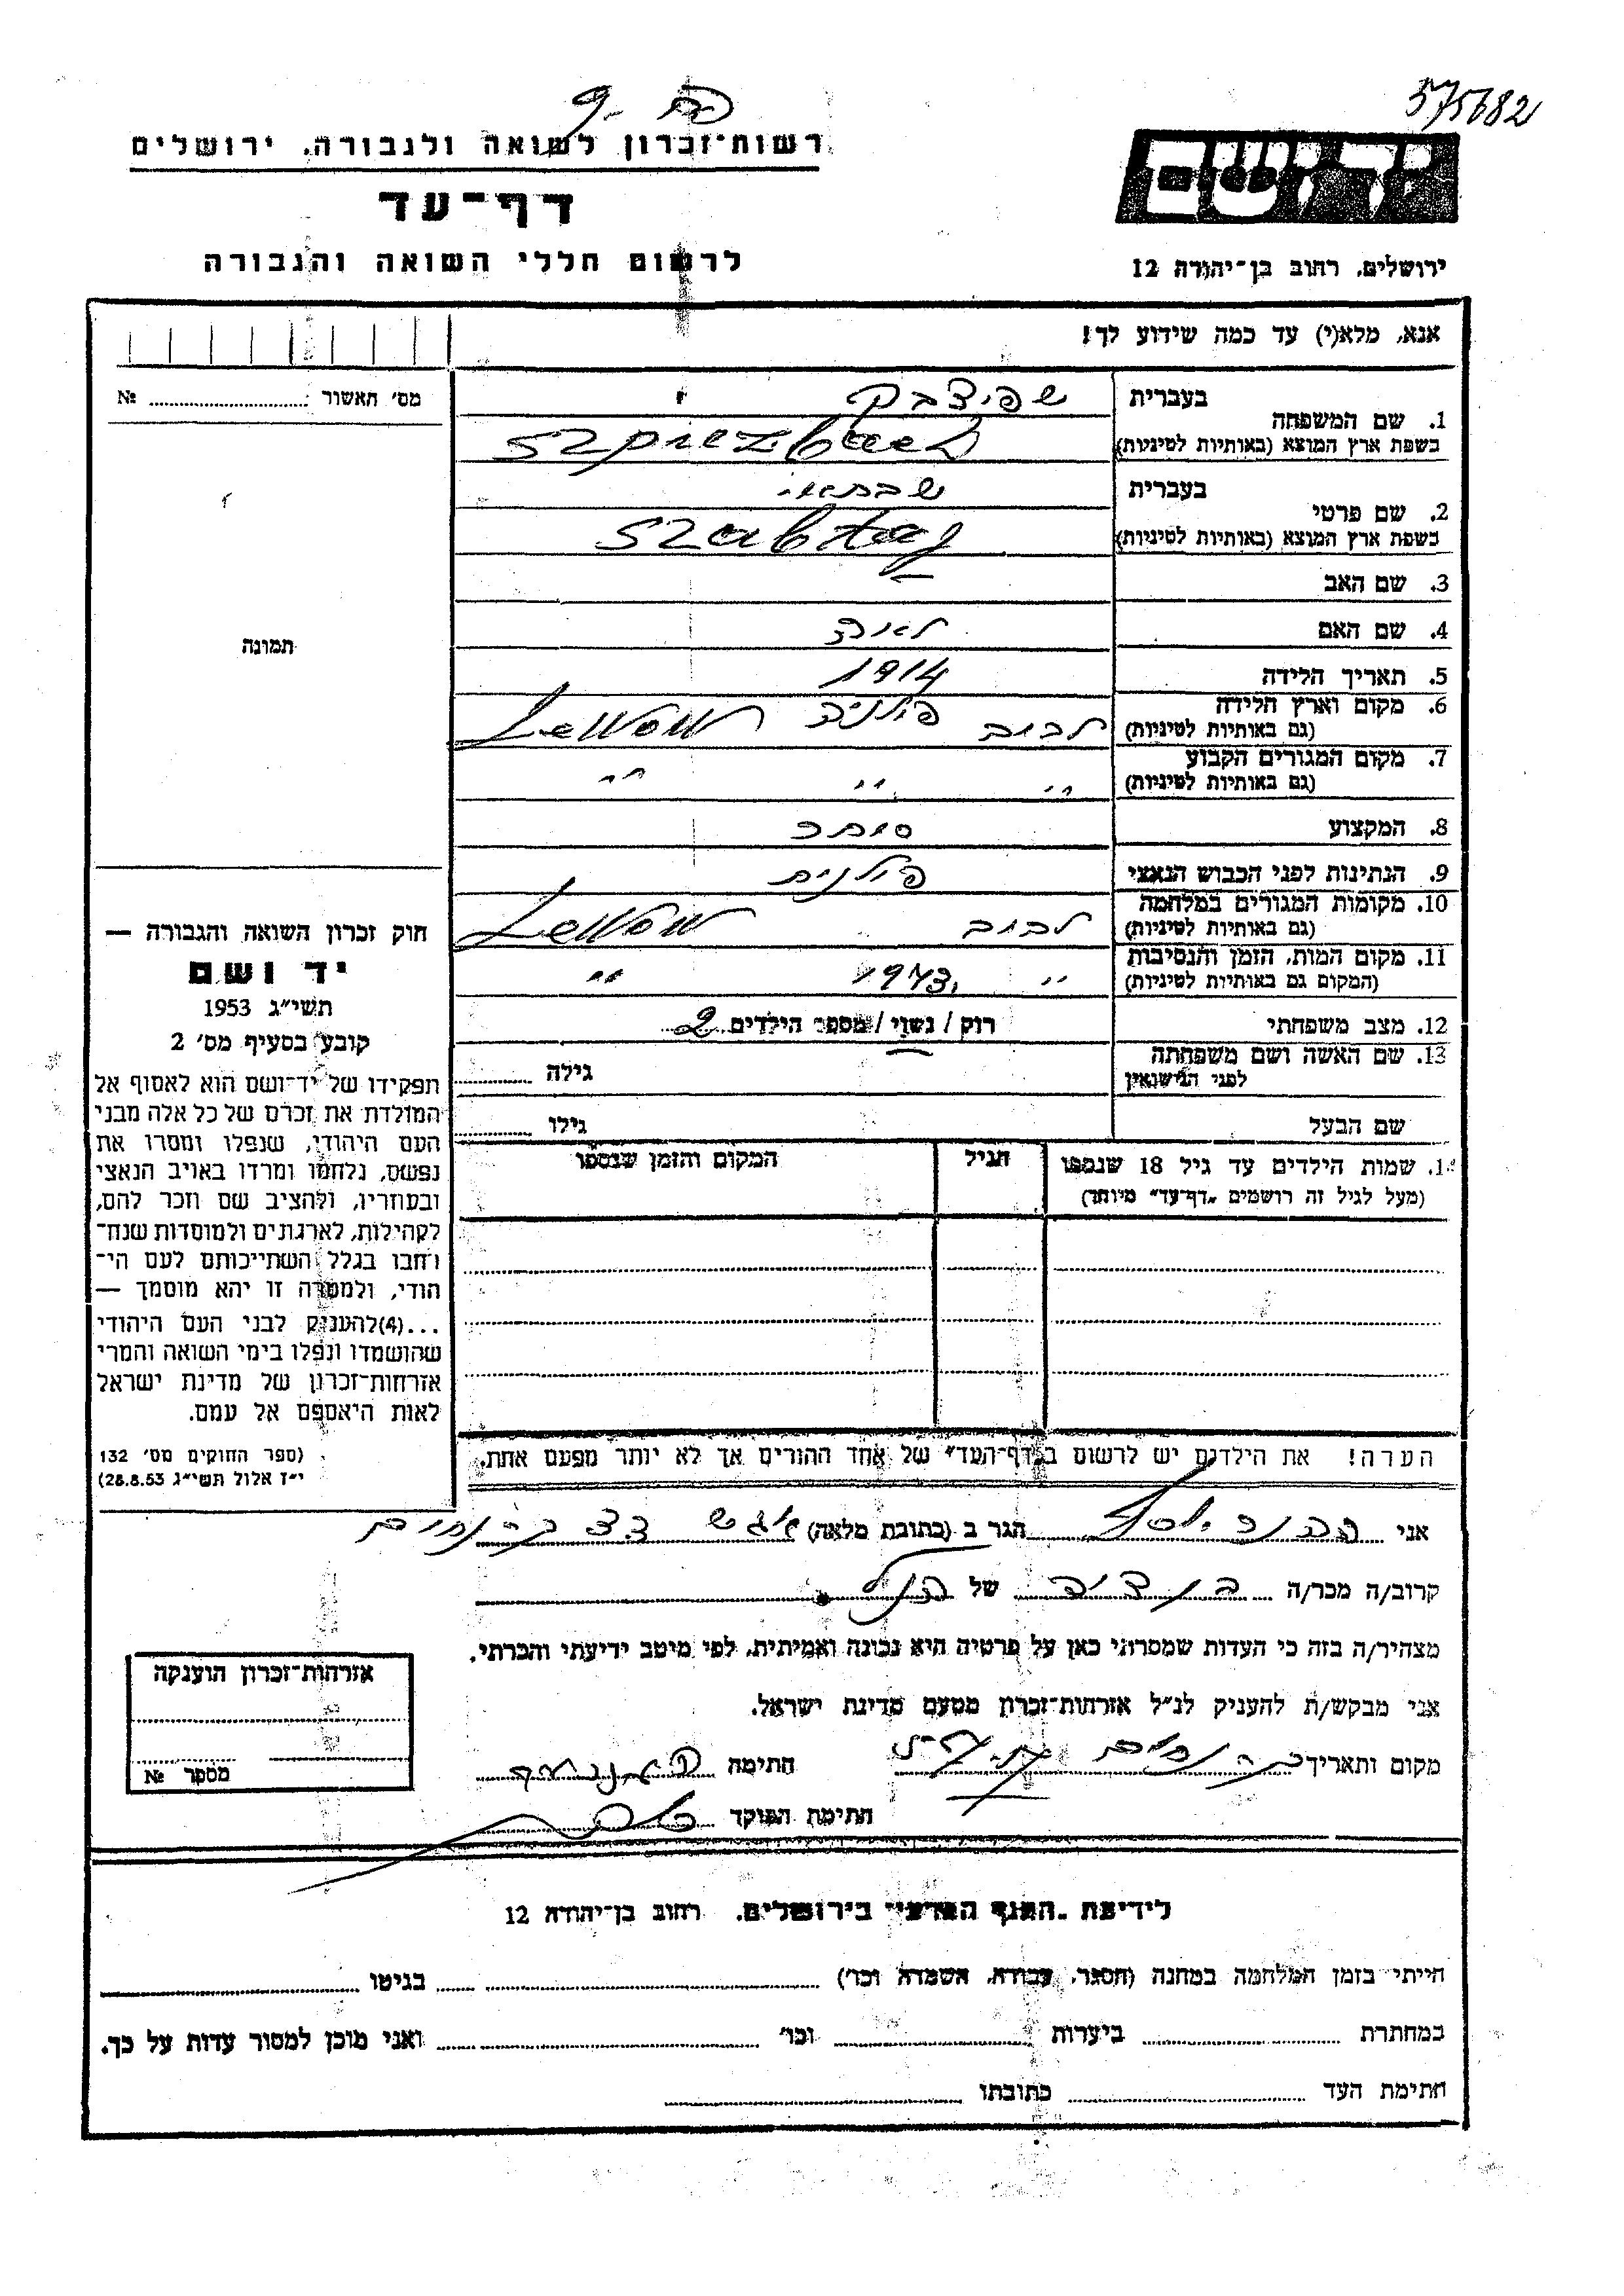 575682
פח - 9
יד ושם
רשות־זכרון לשואה ולגבורה, ירושלים
דף־עד
לרשום חללי השואה והגבורה
ירושלים, רחוב בן־יהודה 12
אנא, מלא(י) עד כמה שידוע לך!
מס׳ האשור № 
1. שם המשפחה
בעברית שפיצבק
בשפת ארץ המוצא (באותיות לטיניות)
2. שם פרטי
בעברית שבתאי
בשפת ארץ המוצא (באותיות לטיניות) Szabtaj
3. שם האב —
4. שם האם לאה
5. תאריך הלידה 1914
6. מקום וארץ הלידה (גם באותיות לטיניות) לבוב פולניה
7. מקום המגורים הקבוע (גם באותיות לטיניות) " " "
8. המקצוע סוחר
9. הנתינות לפני הכבוש הנאצי פולנית
10. מקומות המגורים במלחמה (גם באותיות לטיניות) לבוב
11. מקום המות, הזמן והנסיבות (המקום גם באותיות לטיניות) " 1943 "
12. מצב משפחתי רוק / נשוי / מספר הילדים 2
13. שם האשה ושם משפחתה לפני הנישואין
גילה
שם הבעל
גילו
תמונה
חוק זכרון השואה והגבורה —
יד ושם
תשי״ג 1953
קובע בסעיף מס׳ 2
תפקידו של יד־ושם הוא לאסוף אל
המולדת את זכרם של כל אלה מבני
העם היהודי, שנפלו ומסרו את
נפשם, נלחמו ומרדו באויב הנאצי
ובעוזריו, ולהציב שם וזכר להם,
לקהילות, לארגונים ולמוסדות שנח־
רחבו בגלל השתייכותם לעם הי־
הודי, ולמטרה זו יהא מוסמך —
...(4) להעניק לבני העם היהודי
שהושמדו ונפלו בימי השואה והמרי
אזרחות־זכרון של מדינת ישראל
לאות היאספם אל עמם.
(ספר החוקים מס׳ 132
י״ז אלול תשי״ג 28.8.53)
1. שמות הילדים עד גיל 18 שנספו
(מעל לגיל זה רושמים „דף־עד״ מיוחד)
הגיל
המקום והזמן שנספו
הערה! את הילדים יש לרשום ב„דף־העד״ של אחד ההורים אך לא יותר מפעם אחת.
אני הגר ב (כתובת מלאה)
קרוב/ה מכר/ה של הנ״ל
מצהיר/ה בזה כי העדות שמסרתי כאן על פרטיה היא נכונה ואמיתית, לפי מיטב ידיעתי והכרתי.
אני מבקש/ת להעניק לנ״ל אזרחות־זכרון מטעם מדינת ישראל.
מקום ותאריך חתימה
חתימת הפוקד
אזרחות־זכרון הוענקה
מספר №
לידיעת רחוב בן־יהודה 12
הייתי בזמן המלחמה במחנה (הסגר, עבודה, השמדה וכו׳) בגיטו
במחתרת ביערות וכו׳ ואני מוכן למסור עדות על כך.
חתימת העד כתובתו